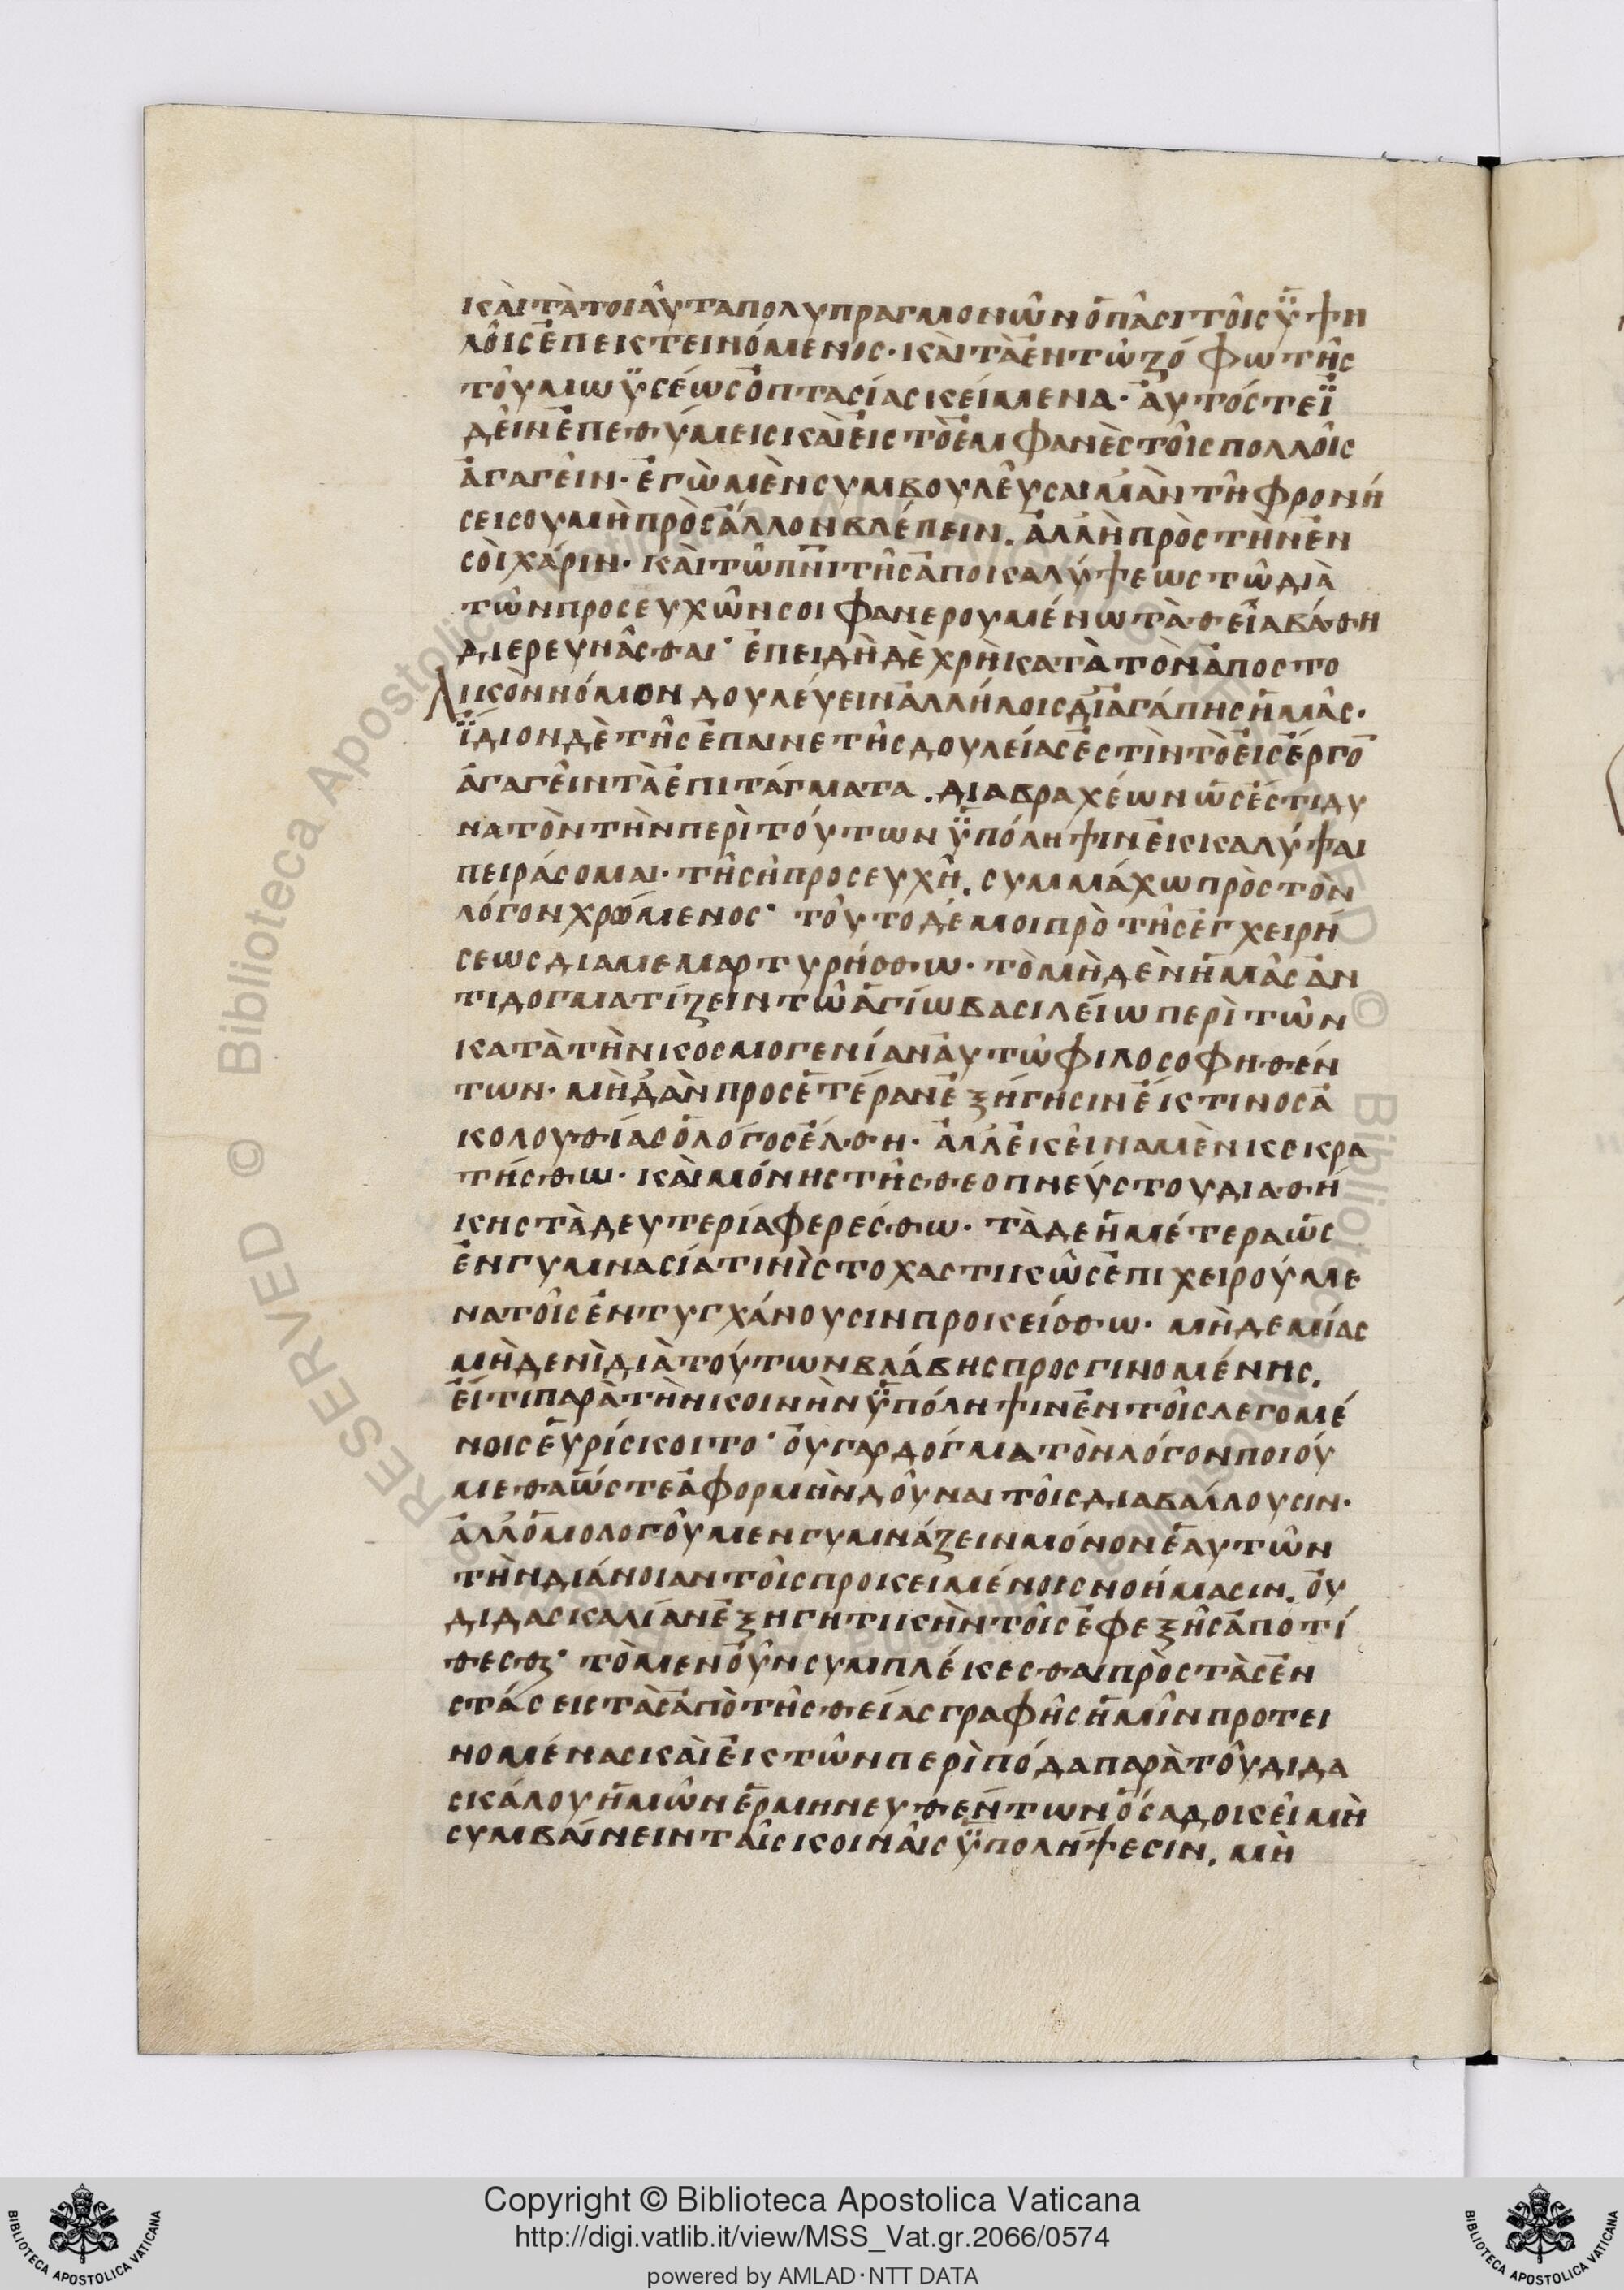 καὶ τὰ τοιαῦτα πολυπραγμονῶν ὁ πᾶσι τοῖς ὑψη
λοῖς ἐπεκτεινόμενος· καὶ τὰ ἐν τῶ ζόφω τῆς
τοῦ μωϋσέως ὀπτασίας κείμενα· αὐτός τε ἰ
δεῖν ἐπεθύμεις καὶ εἰς τὸ ἐμφανὲς τοῖς πολλοῖς
ἀγαγεῖν· ἐγὼ μὲν συμβουλεῦσαιμ' ἂν τῆ φρονή
σει σου μὴ πρὸς ἄλλον βλέπειν. ἀλλ' ἢ πρὸς τὴν ἐν
σοὶ χάριν· καὶ τῶ πνι τῆς ἀποκαλύψεως τῶ διὰ
τῶν προσευχῶν σοι φανερουμένω τὰ θεῖα βάθη
διερευνᾶσθαι· ἐπειδὴ δὲ χρὴ κατὰ τὸν ἀποστο
λικὸν νόμον δουλεύειν ἀλλήλοις δι' ἀγάπης ἡμᾶς·
ἴδιον δὲ τῆς ἐπαινετῆς δουλείας ἐστὶν τὸ εἰς ἔργο̅
ἀγαγεῖν τὰ ἐπιτάγματα. διὰ βραχέων ὡς ἐστι δυ
νατὸν τὴν περὶ τούτων ὑπόληψιν ἐκκαλύψαι
πειράσομαι· τῆ σῆ προσευχῆ. συμμάχω πρὸς τὸν
λόγον χρώμενος· τοῦτο δέ μοι πρὸ τῆς ἐγχειρή
σεως διαμεμαρτυρήσθω· τὸ μηδὲν ἡμᾶς ἀν
τιδογματίζειν τῶ ἁγίω βασιλείω περὶ τῶν
κατὰ τὴν κοσμογενίαν αὐτῶ φιλοσοφηθέν
των· μὴ δ' ἂν προς ἑτέραν ἐξήγησιν ἔκ τινος ἀ
κολουθίας ὁ λόγος ἔλθη· ἀλλ' ἐκεῖνα μὲν κεκρα
τήσθω· καὶ μόνης τῆς θεοπνεύστου διαθή
κης τὰ δευτερία φερέσθω· τὰ δε ἡμέτερα ὡς
ἐν γυμνασία τινὶ στοχαστικῶς ἐπιχειρούμε
να τοῖς ἐντυγχάνουσιν προκείσθω· μὴ δεμίας
μὴ δενὶ διὰ τούτων βλάβης προσγινομένης.
εἴ τι παρὰ τὴν κοινὴν ὑπόληψιν ἐν τοῖς λεγομέ
νοις εὑρίσκοιτο· οὐ γαρ δόγμα τὸν λόγον ποιού
μεθα ὥστε ἀφορμὴν δοῦναι τοῖς διαβάλλουσιν·
ἀλλ' ὁμολογοῦμεν γυμνάζειν μόνον ἑαυτῶν
τὴν διάνοιαν τοῖς προκειμένοις νοήμασιν. οὐ
διδασκαλίαν ἐξηγητικὴν τοῖς ἐφεξῆς ἀποτί
θεσθϗ· τὸ μεν οὖν συμπλέκεσθαι πρὸς τὰς ἐν
στάσεις τὰς ἀπὸ τῆς θείας γραφῆς ἡμῖν προτει
νομένας καὶ ἐκ τῶν περὶ πόδα παρὰ τοῦ διδα
σκάλου ἡμῶν ἑρμηνευθέντων ὅσα δοκεῖ μὴ
συμβαίνειν ταῖς κοιναῖς ὑπολήψεσιν. μὴ
Copyright © Biblioteca Apostolica Vaticana
http://digi.vatlib.it/view/MSS_Vat.gr.2066/0574
powered by AMLAD·NTT DATA